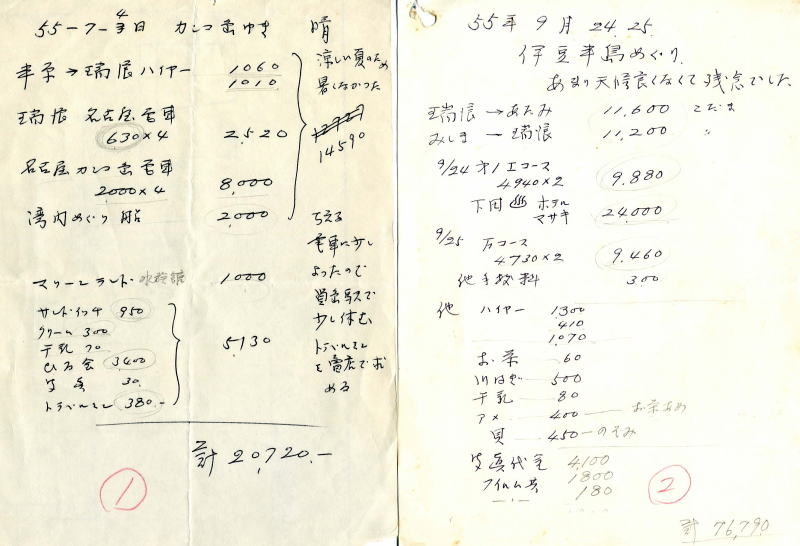 55-7-4日 カシコ島ゆき 晴
半原→瑞浪ハイヤー 1060
1010
涼しい夏のため
暑くなかった
瑞浪 名古屋電車
630×4 2,520
14590
名古屋カシコ島電車
2000×4 8,000
湾内めぐり船 2,000
ちえる
電車に少し
よったので
賢島駅で
少し休む
トラベルミン
を売店で求
める
マリーンランド・水族館 1000
サンドイッチ 950
クリーム 300
牛乳 70
ひる食 3400
写真 30
トラベルミン 380.-
5,130
計 20,720.-
1
55年9月24.25.
伊豆半島めぐり
あまり天候良くなくて残念でした
瑞浪→あたみ 11,600 こだま
みしま→瑞浪 11,200 〃
9/24 オ1エコース
4940×2 9,880
下田♨ホテル
マサキ 24,000
9/25 万コース
4730×2 9,460
他手数料 300
他 ハイヤー 1300
410
1,070
お茶 60
500
牛乳 80
アメ 400 お茶あめ
貝 450 のぞみ
写真代金 4,100
フイルム共 1800
180
2
計 76,790